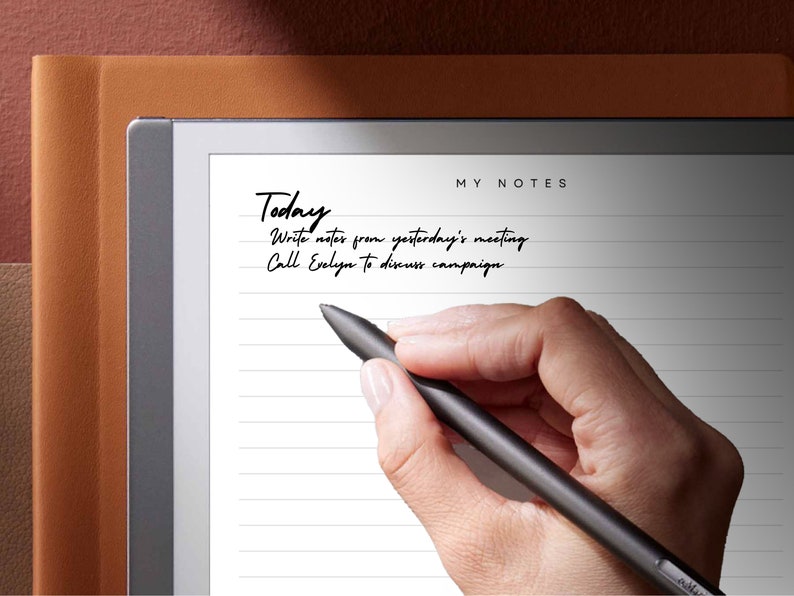 MY NOTES
Today
Write notes from yesterday's meeting
Call Evelyn to discuss campaign